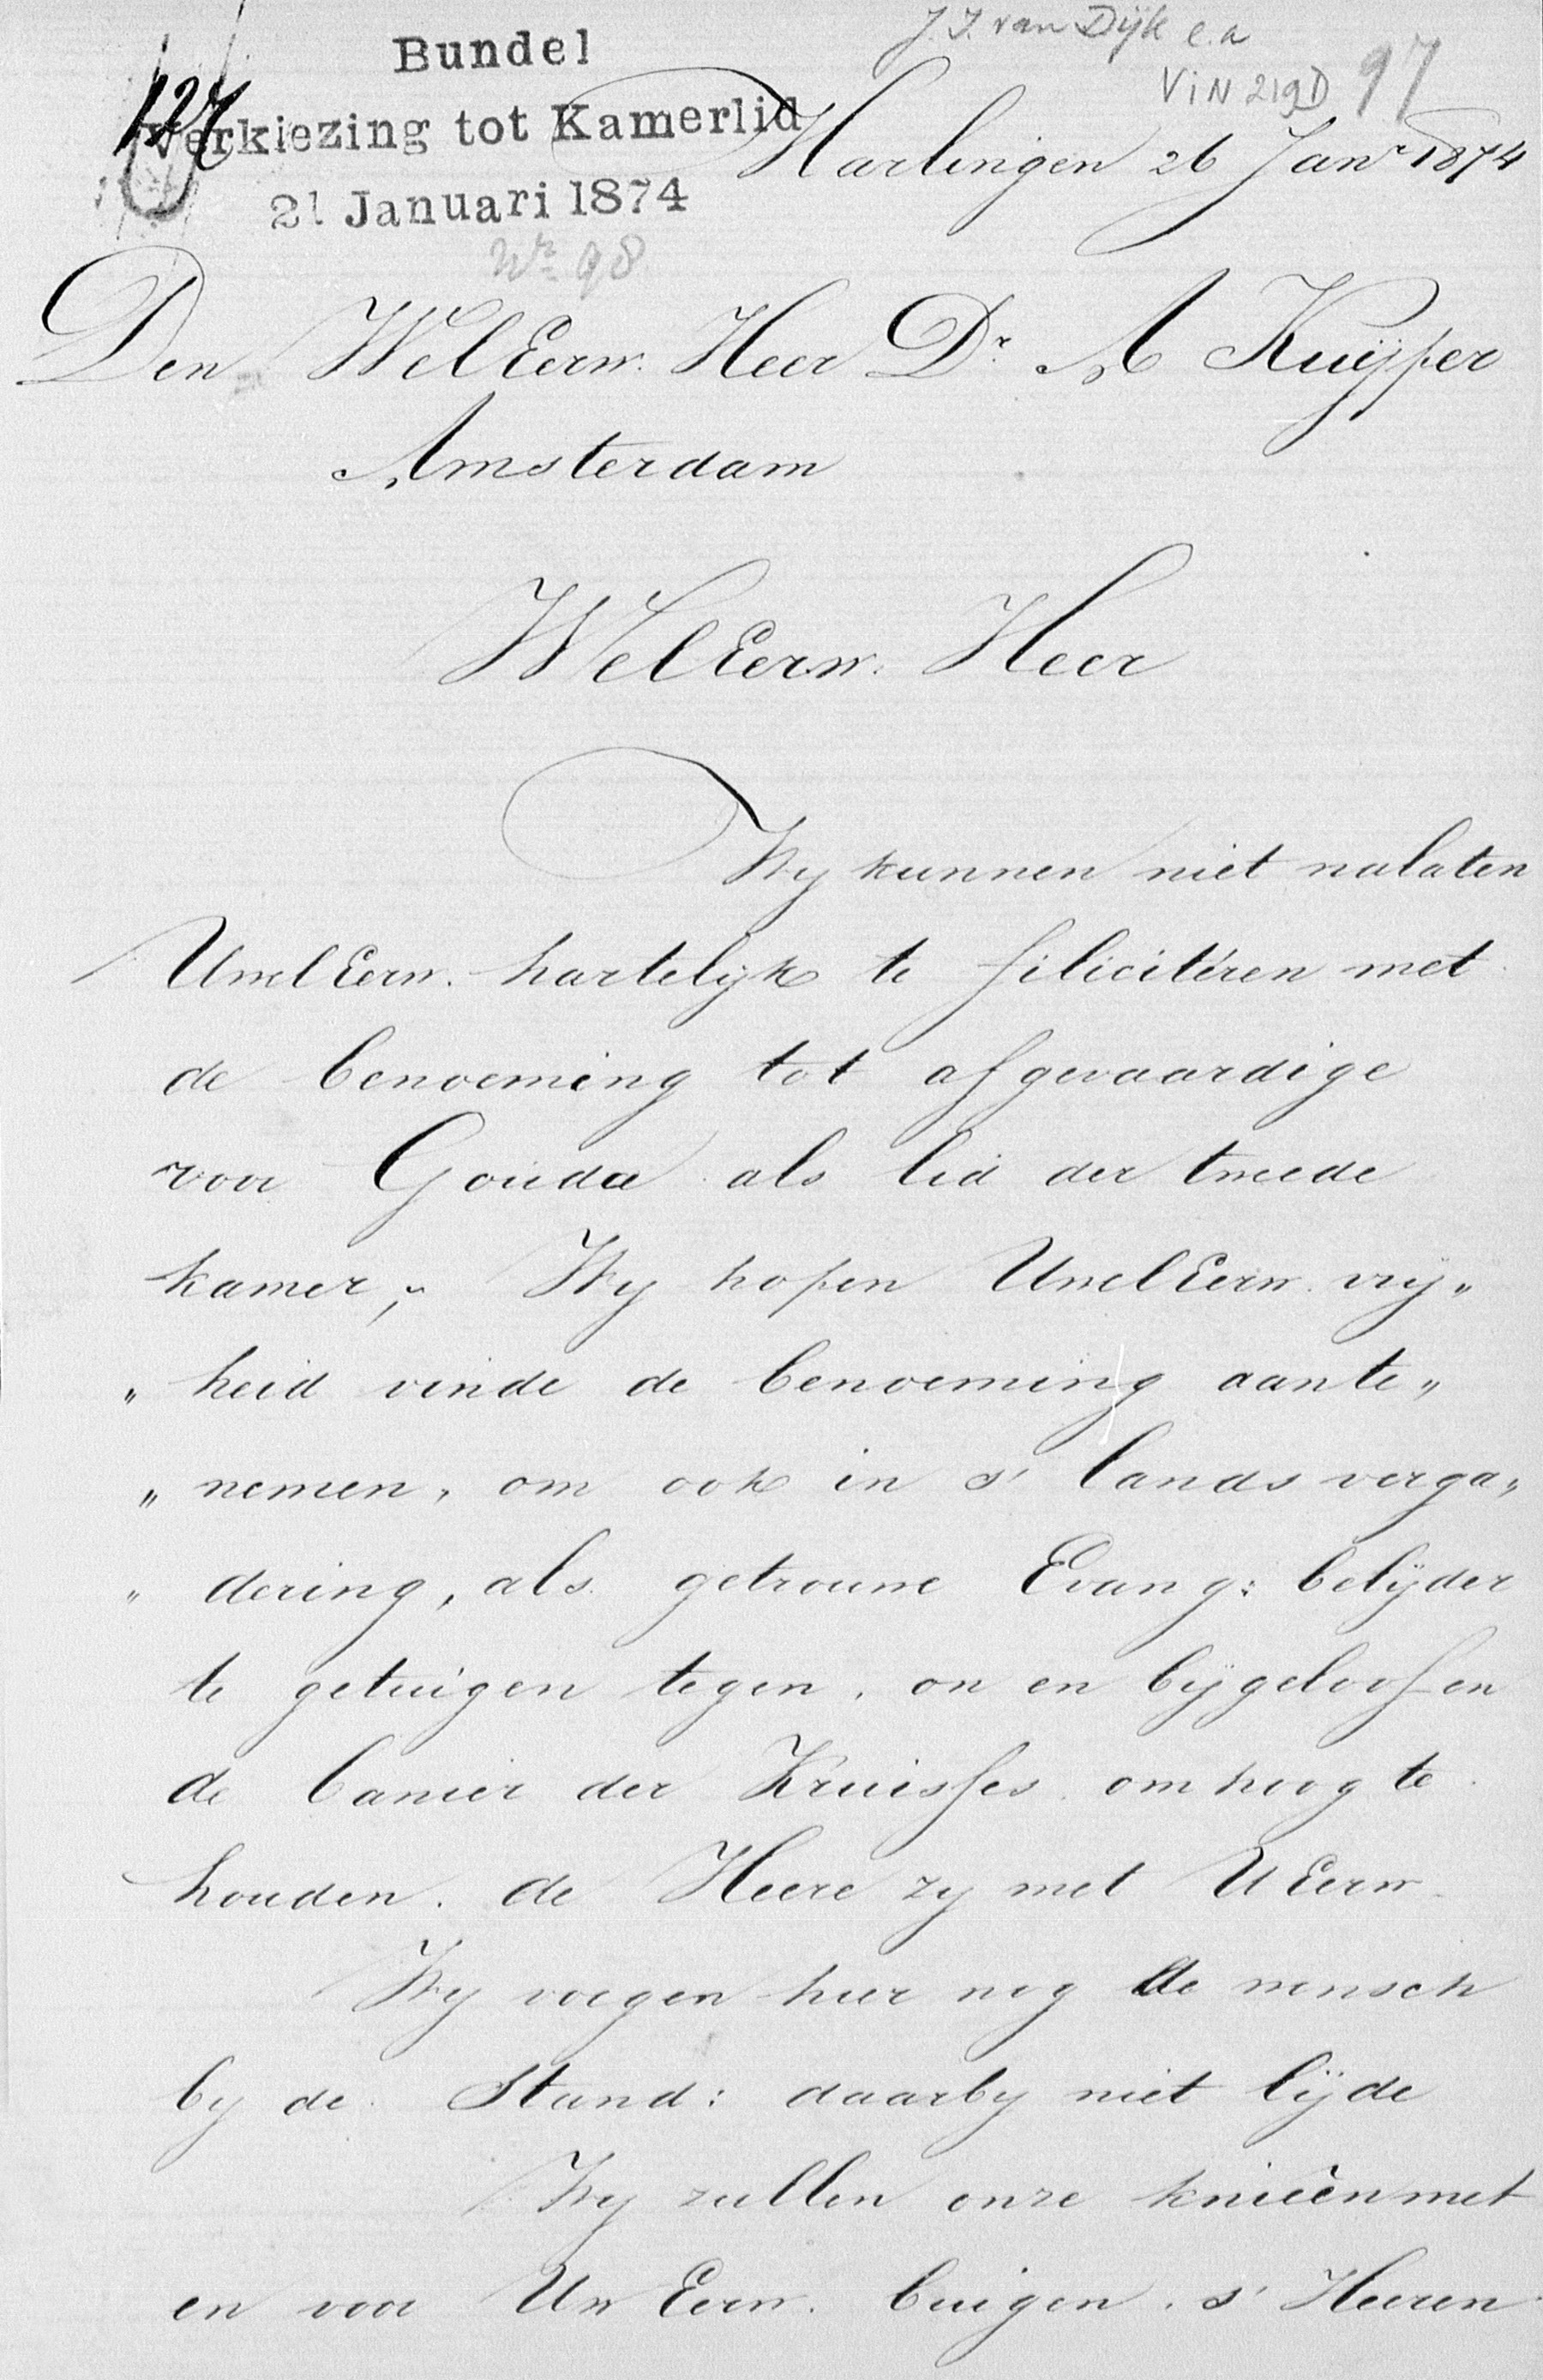 J. J. van Dijk e.a
Bundel
VIN 219D 97
127
Verkiezing tot Kamerlid
Harlingen 26 Janr 1874
21 Januari 1874
Nr 98
Den WelEerw. Heer Dr. A Kuijper
Amsterdam
WelEerw. Heer
Wy kunnen niet nalaten
UwelEerw. hartelijk te filiciteren met
de benoeming tot afgevaardige
voor Gouda als lid der tweede
kamer, Wy hopen UwelEerw. vrij„
„ heid vinde de benoeming aan te„
„ nemen, om ook in s' lands verga„
„ dering, als getrouwe Evang: belijder
te getuigen tegen, on en bijgeloof en
de banier der Kruisses omhoog te
houden. de Heere zy met UEerw.
Wy voegen hier nog de wensch
by de Stand: daarby niet lijde
Wy zullen onze knieën met
en voor Uw Eerw. buigen. s' Heeren